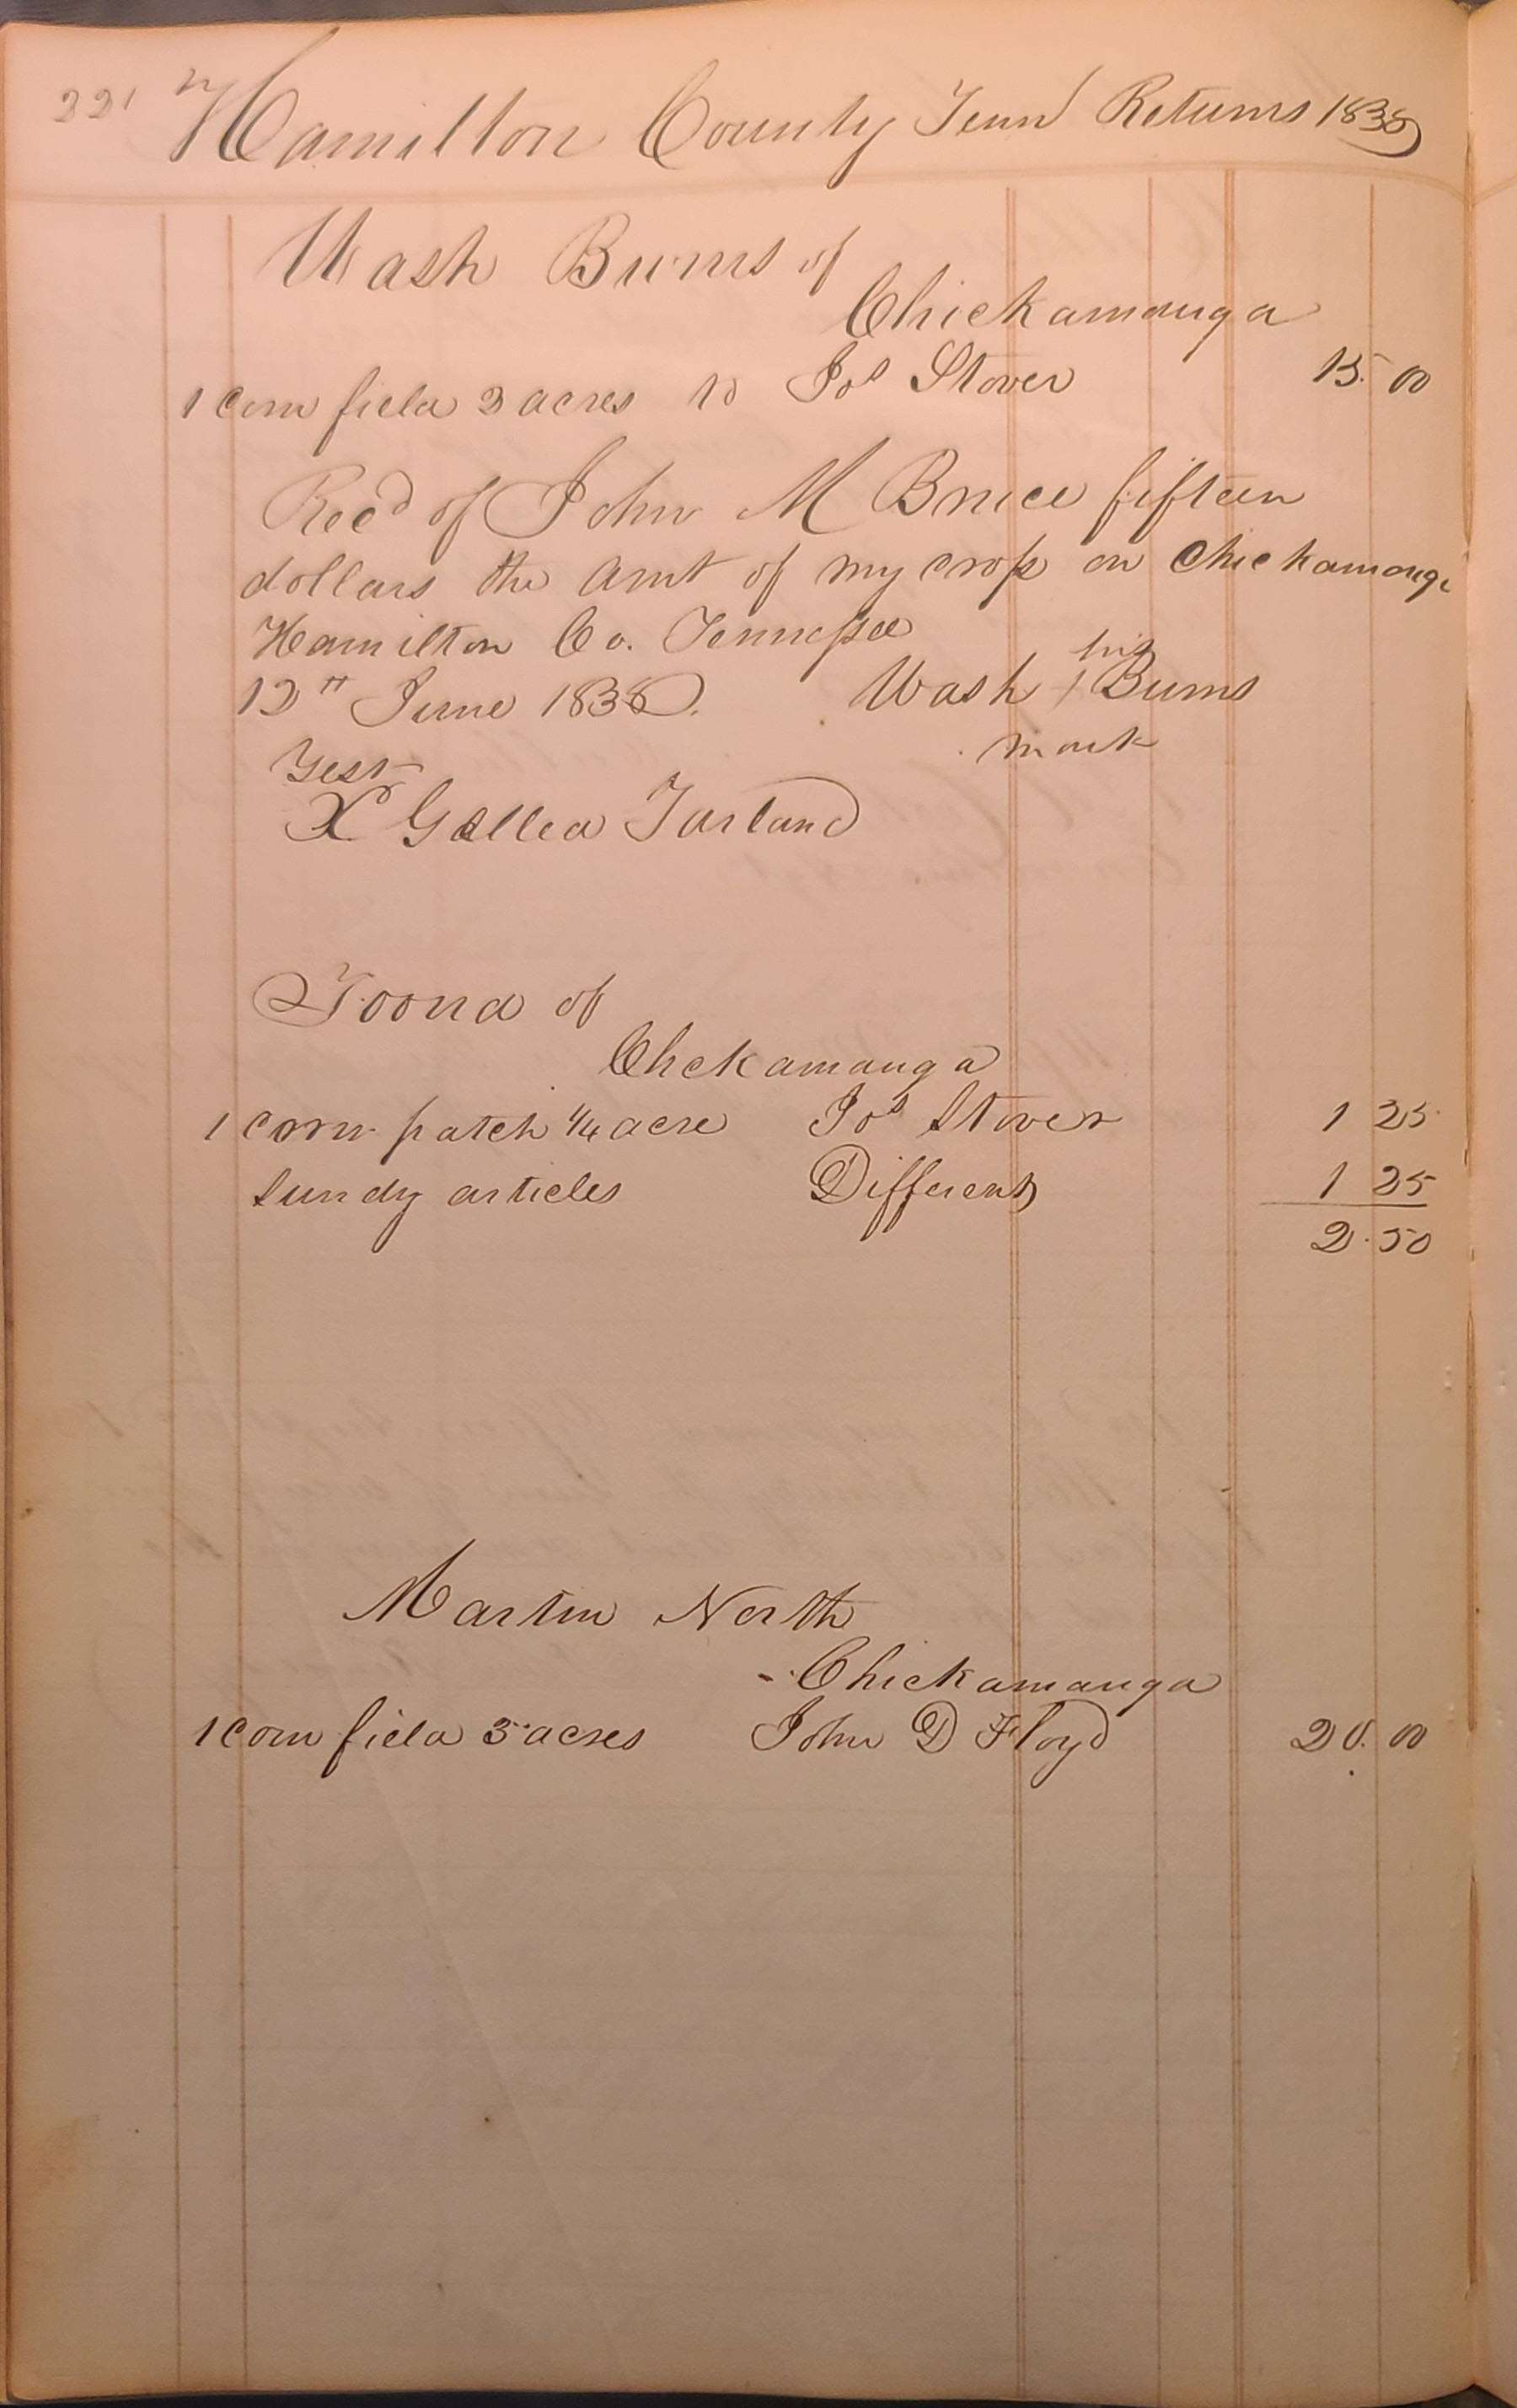 221 Hamilton County Tenn Returns 1838
Wash Burns of
Chickamauga
1 corn field 3 acres to Jos Stover 15.00
Recd of John M Bruce fifteen
dollars the amt of my crop on Chickamauga
Hamilton Co. Tennessee
12th June 1838. Wash his x Burns
mark
Test
X Gallea Tarland
Toona of
Chckamauga
1 corn patch 1/4 acre Jos Stover 1 25
Sundy articles Different 1 25
2.50
Martin North
Chickamauga
1 corn field 5 acres John D Floyd 20.00